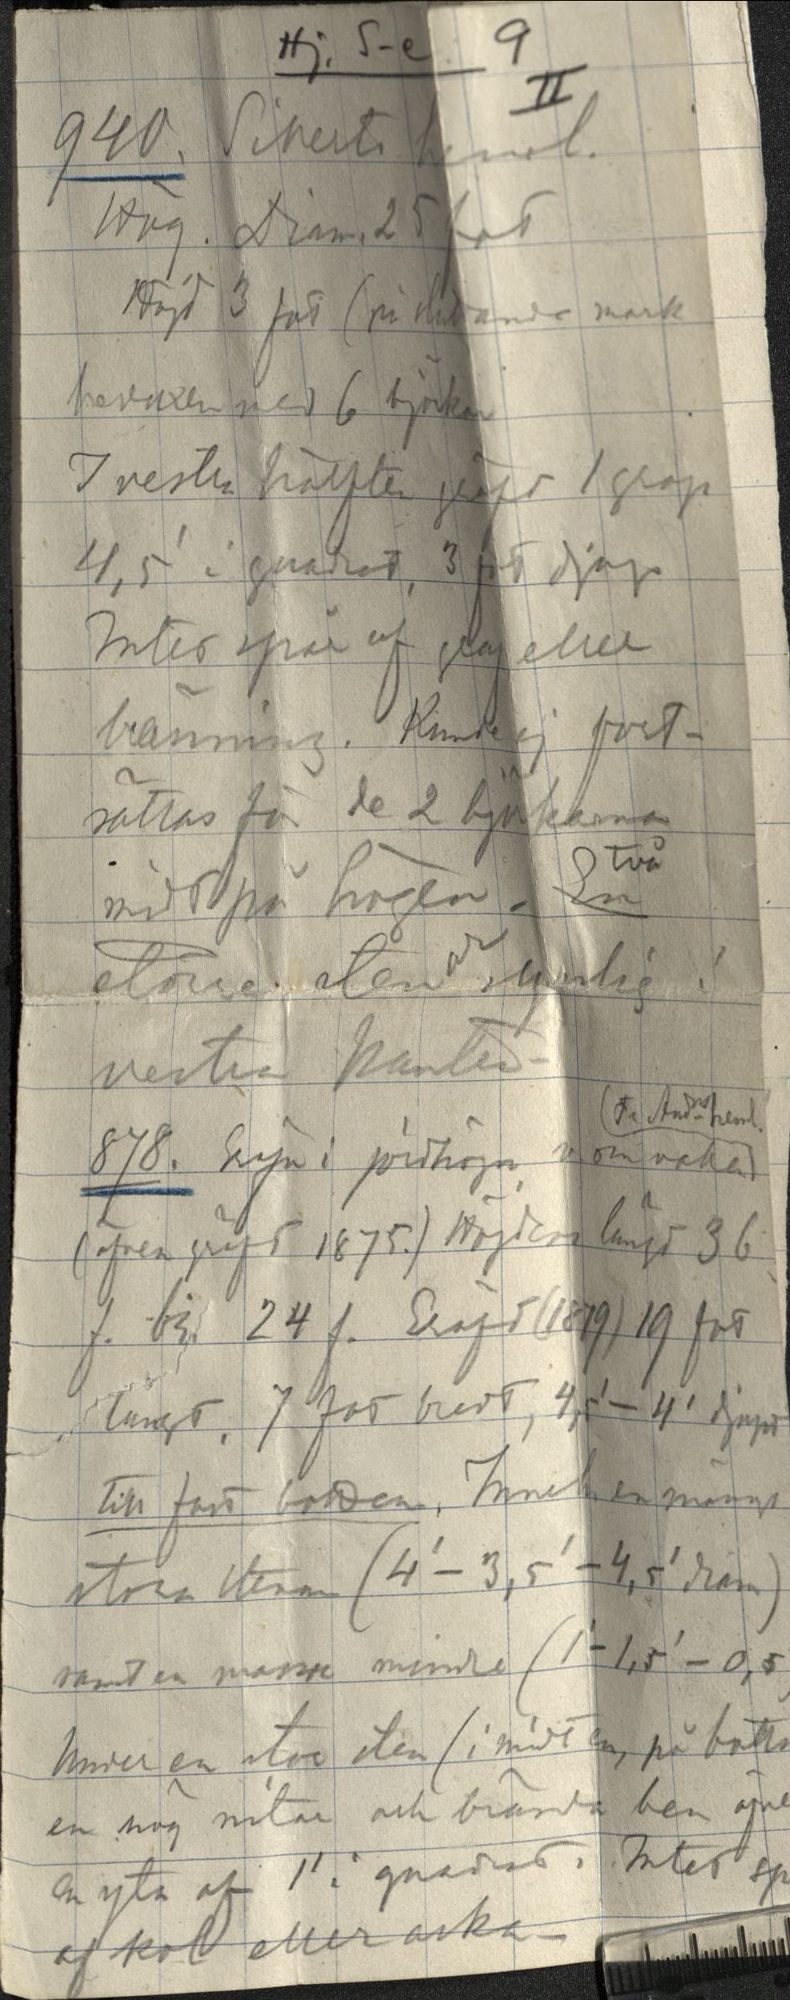 Hj. S-e 9
II
940. Siverts heml.
Hög. Diam. 25 fot
Höjd 3 fot (på sluttande mark
bevuxen med 6 björkar
I vestra hälften gräfd 1 grop
4,5' i quadrat, 3 fot djup
Intet spår af graf eller
bränning. Kunde ej fort-
sättas för de 2 björkarna
midt på högen. En två
större stenar synlig i
vestra kanten-
(Fr. And heml.
878. i jordhögen,
(äfven gräfd 1875.) Höjdens längd 36
f. br. 24 f. Gräfd (1879) 19 fot
långt, 7 fot bredt, 4,5'-4' djupt
till fast botten. Inneh en mängd
stora stenar (4'-3,5'-4,5' diam)
samt en massa mindre (1'-1,5'-0,5
Under en stor sten (i midten, på botte
en hög och brända ben öfve
en yta af 1' i quadrat. Intet sp
af kol eller aska-